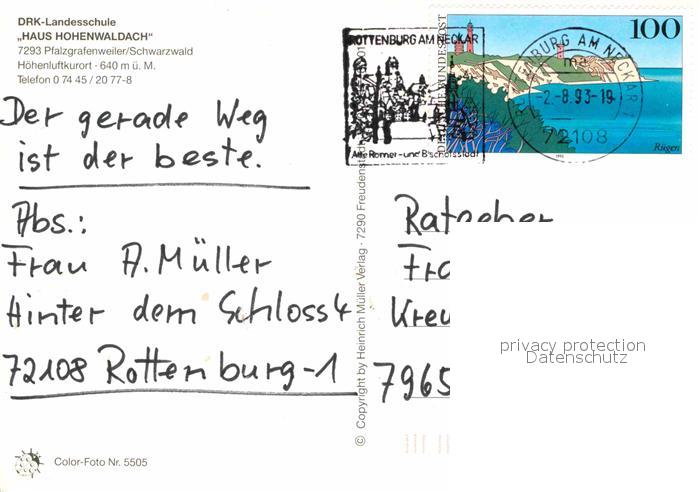 DRK-Landesschule
„HAUS HOHENWALDACH"
7293 Pfalzgrafenweiler/Schwarzwald
Höhenluftkurort · 640 m ü. M.
Telefon 0 74 45 / 20 77-8
Der gerade Weg
ist der beste.
Abs.:
Frau A. Müller
Hinter dem Schloss 4
72108 Rottenburg-1
Color-Foto Nr. 5505
© Copyright by Heinrich Müller Verlag · 7290 Freudenstadt
ROTTENBURG AM NECKAR
Alte Römer- und Bischofsstadt
DEUTSCHE BUNDESPOST
100
Rügen
1993
ROTTENBURG AM NECKAR 1
ma
-2.-8.93-19
72108
Ratgeber
Fra
Kreu
7965
privacy protection
Datenschutz